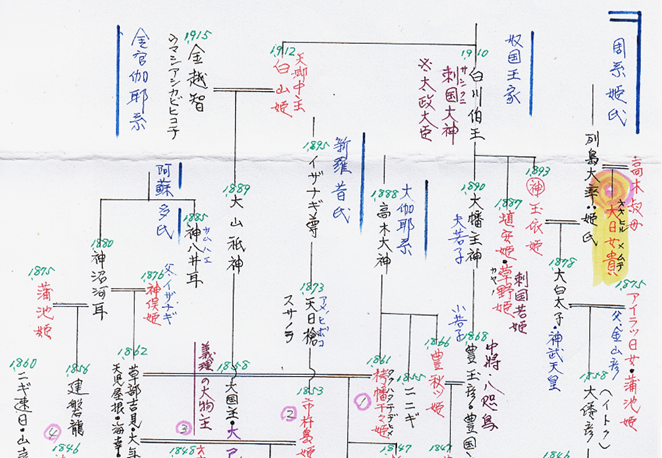 周系姫氏
高木叔母
大日女貴
オオヒルメムチ
列島大率・姫氏
1875
アイラツ日女・蒲池姫
父、金山彦
1893
神玉依姫
1878
大白太子・神武天皇
1858
大倭彦
奴国王家
1910
白川伯王
サシクニ
刺国大神
※太政大臣
1887
埴安姫・草野姫
カヤノ
刺国若姫
1890
大幡主神
大若子
小若子
1868
豊玉彦・豊国
中将・八咫烏
1912
天御中主
白山姫
大伽耶系
1888
高木大神
1866
豊秋ツ姫
1855
ニニギ
1861
栲幡千々姫
①
1847
1847
新羅昔氏
1895
イザナギ尊
1873
天日槍
アメノヒボコ
スサノヲ
1853
市杵島姫
②
1915
金越智
ウマシアシカビヒコヂ
金官伽耶系
1889
大山祇神
1858
大国主・大
義理の大物主
③
阿蘇多氏
1885
神八井耳
カムヤイ
1880
神沼河耳
1876
神俣姫
父、イザナギ
1862
草部吉見・大年
天児屋根・海幸
1848
1875
蒲池姫
1856
建磐龍
④
1846
1860
ニギ速日・山幸